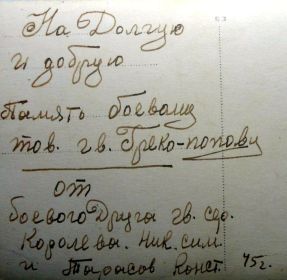 На Долгую
и добрую
Память боевому
тов. гв. Греко-попову
от
боевого Друга гв. сер.
Королева. Ник. сим.
и Тарасов Конст. 45г.